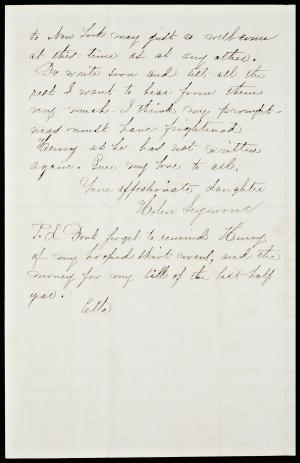 to New York may just as well come
at this time as at any other.
Do write soon and tell all the
rest I want to hear from them
very much. I think my prompt-
ness must have frightened
Henry as he has not written
again. Give my love to all.
Your affectionate daughter
Helen Seymour
P.S. Dont forget to remind Henry
of my hooped skirt cover, and the
money for my bill of the last half
year.
Ella